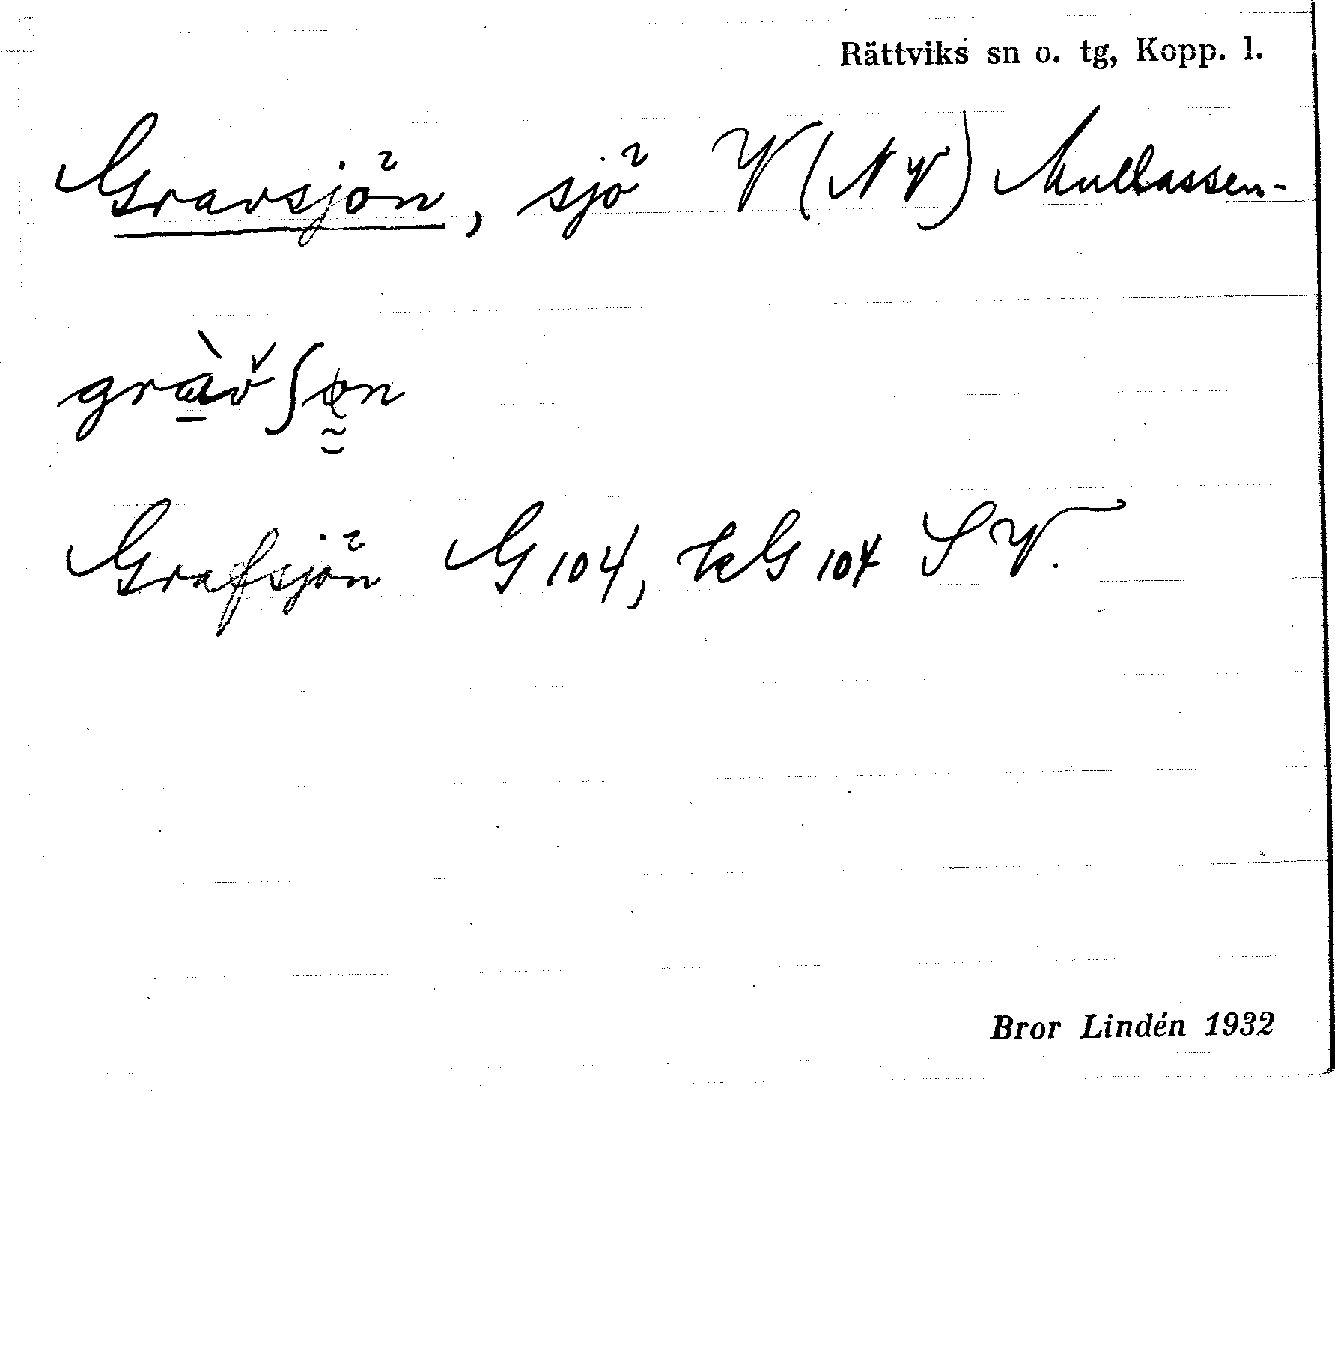 Rättviks sn o. tg, Kopp. l.
Gravsjön, sjö V (NV) Mullassen-
gràv̌ʃøn
Grafsjön G 104, kG 104 SV.
Bror Lindén 1932